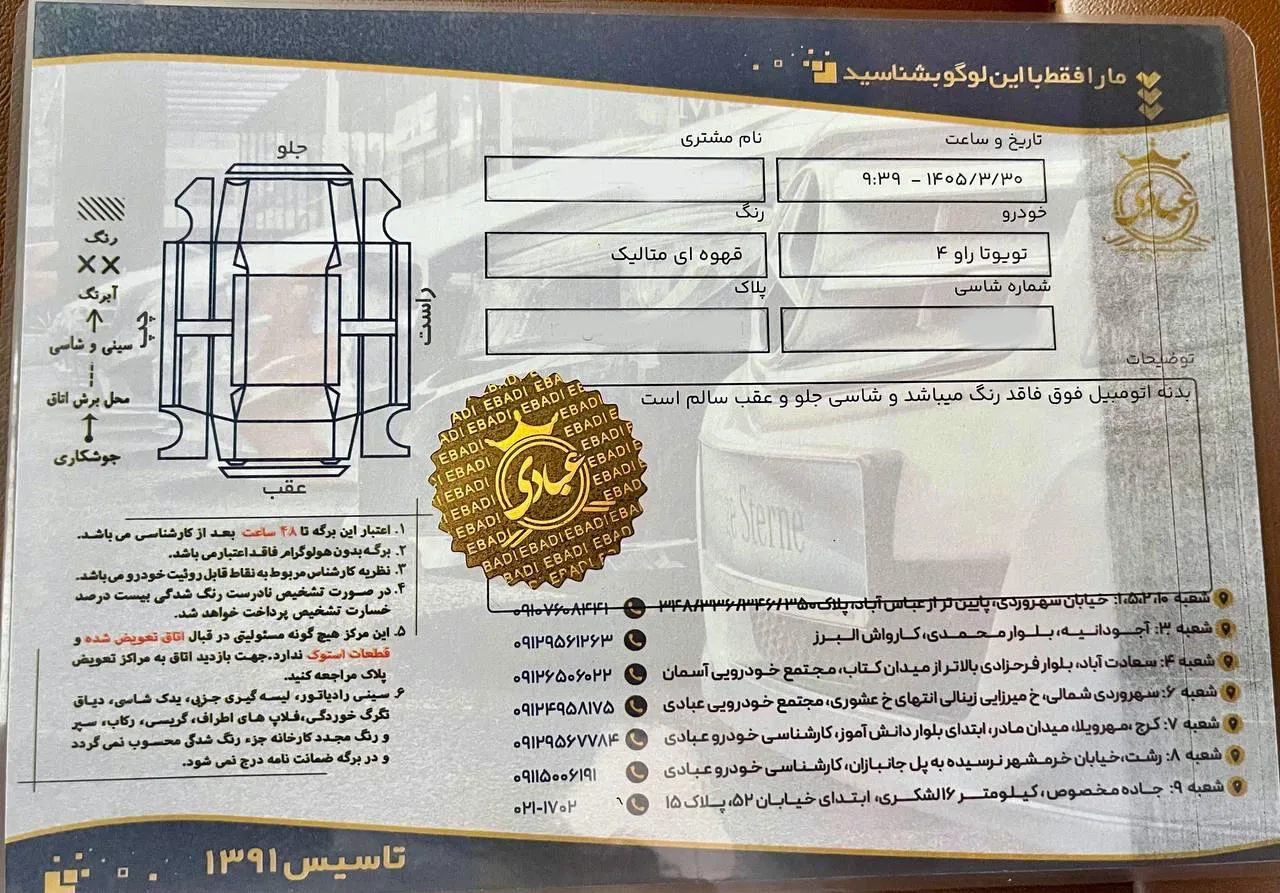 ما را فقط با این لوگو بشناسید
عبادی
تاریخ و ساعت
۱۴۰۵/۳/۳۰ - ۹:۳۹
نام مشتری
خودرو
تویوتا راو ۴
رنگ
قهوه ای متالیک
شماره شاسی
پلاک
توضیحات
بدنه اتومبیل فوق فاقد رنگ میباشد و شاسی جلو و عقب سالم است
جلو
راست
چپ
عقب
رنگ
آبرنگ
سینی و شاسی
محل برش اتاق
جوشکاری
EBADI
عبادی
۱. اعتبار این برگه تا ۴۸ ساعت بعد از کارشناسی می باشد.
۲. برگه بدون هولوگرام فاقد اعتبار می باشد.
۳. نظریه کارشناس مربوط به نقاط قابل روئیت خودرو می باشد.
۴. در صورت تشخیص نادرست رنگ شدگی بیست درصد
خسارت تشخیص پرداخت خواهد شد.
۵. این مرکز هیچ گونه مسئولیتی در قبال اتاق تعویض شده و
قطعات استوک ندارد.جهت بازدید اتاق به مراکز تعویض
پلاک مراجعه کنید.
۶. سینی رادیاتور، لیسه گیری جزیی، یدک شاسی، دیاق
تگرگ خوردگی،فلاپ های اطراف، گریسی، رکاب، سپر
و رنگ مجدد کارخانه جزء رنگ شدگی محسوب نمی گردد
و در برگه ضمانت نامه درج نمی شود.
شعبه ۱،۵،۲،۱۰: خیابان سهروردی، پایین تر از عباس آباد، پلاک ۳۴۸/۳۳۶/۳۴۶/۳۵۰ ۰۹۱۰۷۶۰۸۴۴۱
شعبه ۳: آجودانیه، بلوار محمدی، کارواش البرز ۰۹۱۲۹۵۶۱۲۶۳
شعبه ۴: سعادت آباد، بلوار فرحزادی بالاتر از میدان کتاب، مجتمع خودرویی آسمان ۰۹۱۲۶۵۰۶۰۲۲
شعبه ۶: سهروردی شمالی، خ میرزایی زینالی انتهای خ عشوری، مجتمع خودرویی عبادی ۰۹۱۲۴۹۵۸۱۷۵
شعبه ۷: کرج ،مهرویلا، میدان مادر، ابتدای بلوار دانش آموز، کارشناسی خودرو عبادی ۰۹۱۲۹۵۶۷۷۸۴
شعبه ۸: رشت،خیابان خرمشهر نرسیده به پل جانبازان، کارشناسی خودرو عبادی ۰۹۱۱۵۰۰۶۱۹۱
شعبه ۹: جاده مخصوص، کیلومتر ۱۶ لشکری، ابتدای خیابان ۵۲، پلاک ۱۵ ۰۲۱-۱۷۰۲
تاسیس ۱۳۹۱